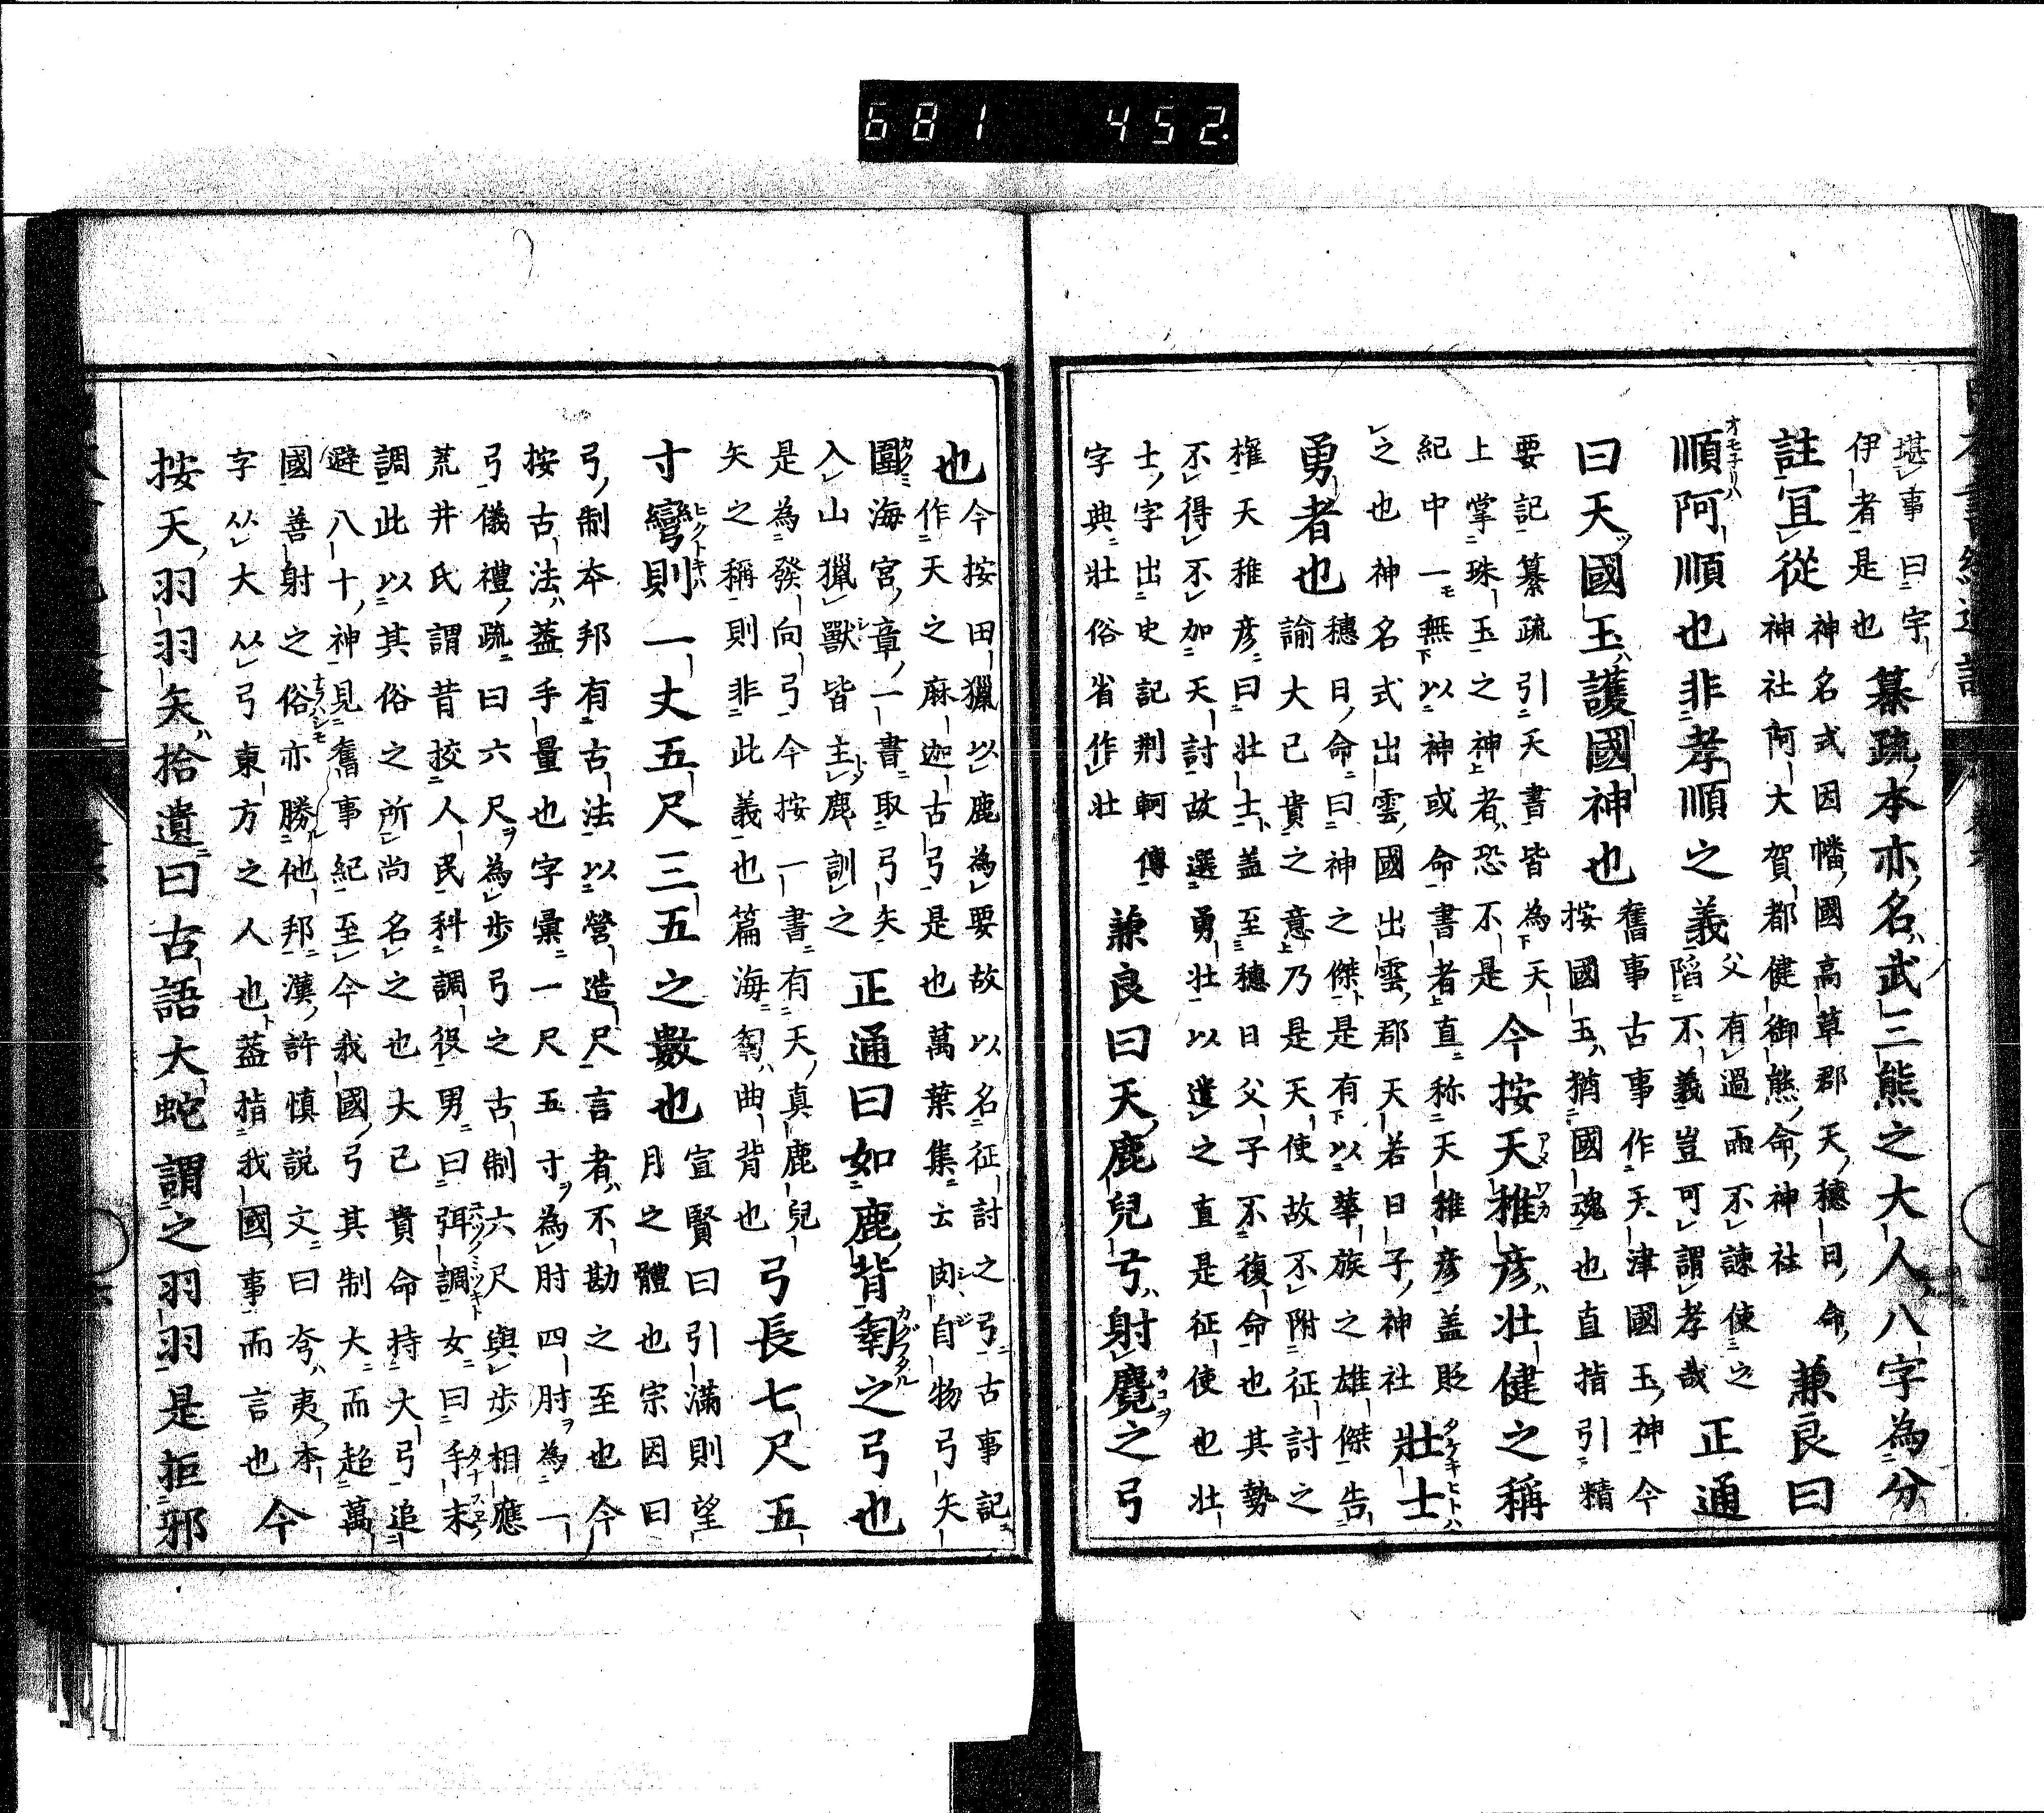 堪事曰宇
伊者是也
纂疏本亦名武三熊之大人八字為分
註宜從
神名式因幡國高草郡天穗日命
神社阿大賀都健御熊命神社
兼良曰
順阿順也非孝順之義
父有過而不諫使之
陷不義豈可謂孝哉
正通
曰天國玉護國神也
舊事古事作天津國玉神今
按國玉猶國魂也直指引精
要記纂疏引天書皆為天
上掌珠玉之神者恐不是
今按天稚彥壯健之稱
紀中一無以神或命書者直称天稚彥盖貶
之也神名式出雲國出雲郡天若日子神社
壯士
勇者也
穗日命曰神之傑是有以華族之雄傑告
諭大己貴之意乃是天使故不附征討之
權天稚彥曰壯士盖至穗日父子不復命也其勢
不得不加天討故選勇壯以遣之直是征使也壯
士字出史記荊軻傳
字典壯俗省作壮
兼良曰天鹿兒弓射麑之弓
也
今按田獵以鹿為要故以名征討之弓古事記
作天之麻迦古弓是也萬葉集云肉自物弓矢
圍海宮章一書取弓矢
入山獵獸皆主鹿訓之
正通曰如鹿背匔之弓也
是為發向弓今按一書有天真鹿兒
矢之稱則非此義也篇海匔曲背也
弓長七尺五
寸彎則一丈五尺三五之數也
宣賢曰引滿則望
月之體也宗因曰
弓制本邦有古法以營造尺言者不勘之至也今
按古法盖手量也字彙一尺五寸為肘四肘為一
弓儀禮疏曰六尺為步弓之古制六尺與步相應
荒井氏謂昔挍人民科調役男曰弭調女曰手末
調此以其俗之所尚名之也大己貴命持大弓追
避八十神見舊事紀至今我國弓其制大而超萬
國善射之俗亦勝他邦漢許慎説文曰夸夷本
字从大从弓東方之人也盖指我國事而言也
今
按天羽羽矢拾遺曰古語大蛇謂之羽羽是拒邪
681 452.